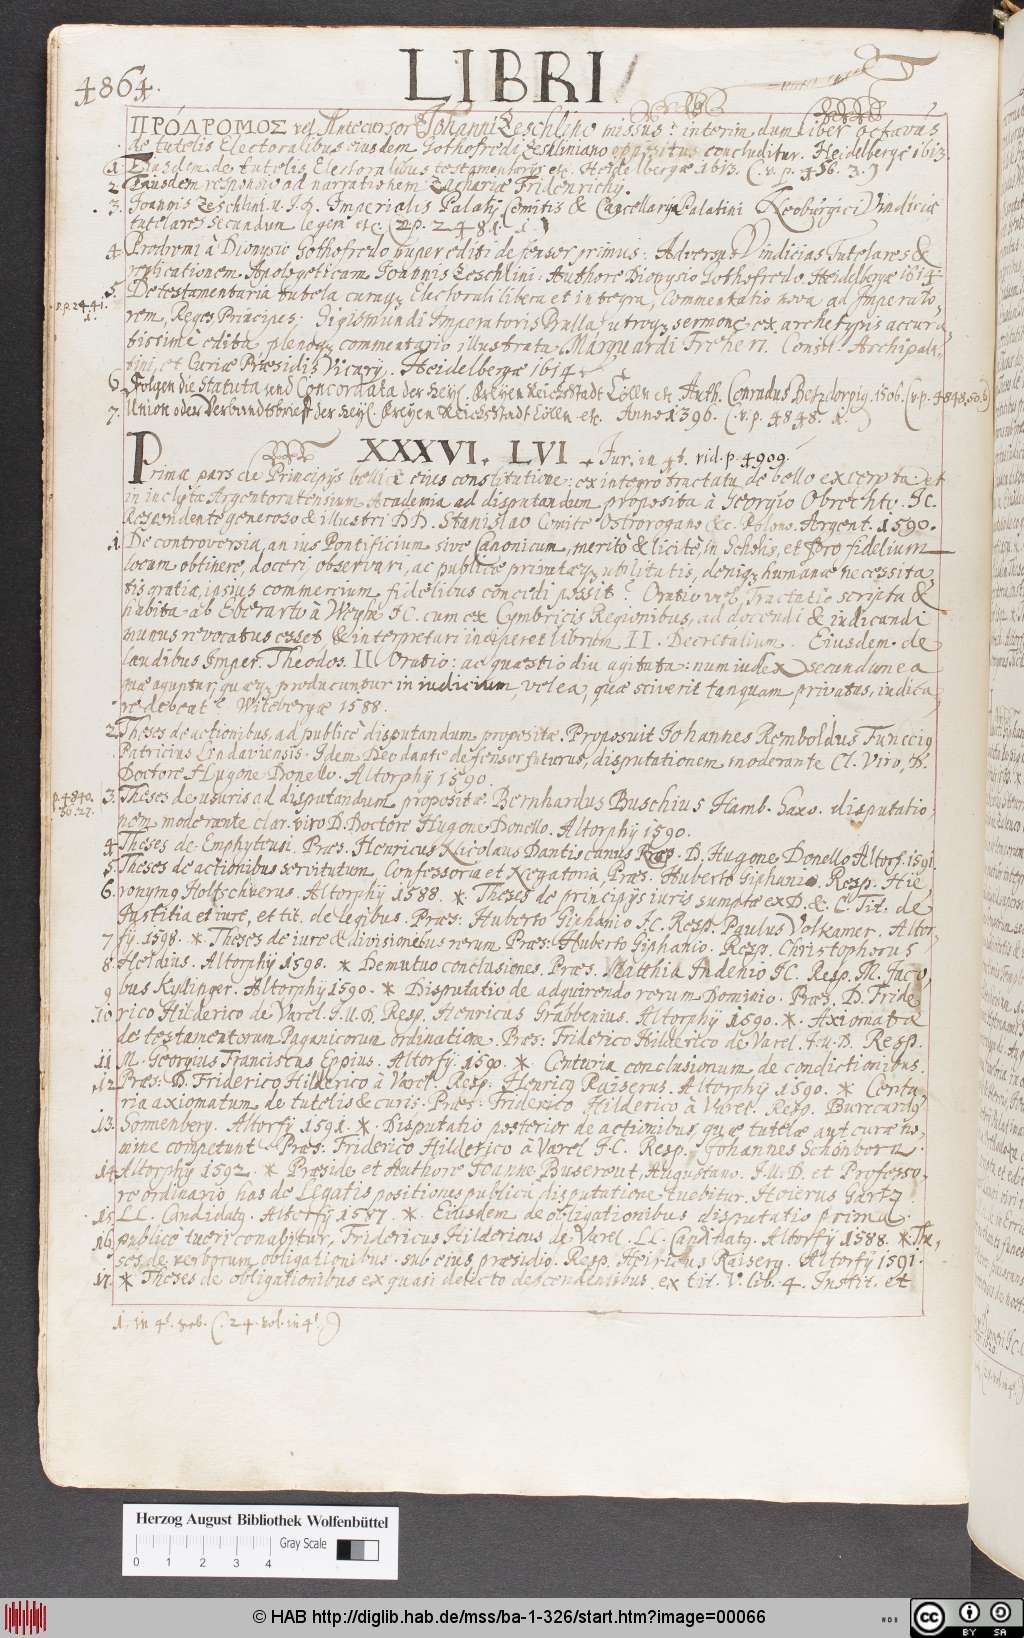 4864.
LIBRI
ΠΡΌΔΡΟΜΟΣ vel Antecursor Iohanni Zeschlino missus: interim dum liber octavus
de tutelis Electoralibus eiusdem Gothofredi Zeschliniano oppositus concluditur. Heidelbergæ 1613.
1. Eiusdem de tutelis Electoralibus testamentarijs etc. Heidelbergæ 1613. (v. p. 456. 3.)
2. Eiusdem responsio ad narrationem Zachariæ Fridenrichij.
3. Joannis Zeschlini. u. I. D. Imperialis Palatij Comitis & Cancellarij Palatini Neoburgici Vindiciæ
tutelares secundum legem etc. (p. 2481. 1.)
4 Prodromi à Dionysio Gothofredo nuper editi defensor primus: Adversus Vindicias Tutelares &
replicationem Apologeticam Joannis Zeschlini: Authore Dionysio Gothofredo. Heidelbergæ 1614.
5. De testamentaria tutela curaq; Electorali libera et integra, Commentatio nova ad Imperato-
v. p. 2441.
1.
rem, Reges Principes. Sigismundi Imperatoris Bulla utroq; sermone ex archetypis accura-
tissimè edita plenoq; commentario illustrata Marquardi Freheri. Consil. Archipala-
tini, et Curiæ Præsidis Vicarij. Heidelbergæ 1614.
6. Folgen die Statuta und Concordata der Heyl. Freyen Reichs Stadt Cöllen etc Auth. Conradus Betzdorpig. 1506. (v. p. 4848. 50. b)
7. Union oder Verbundtsbrieff der Heyl. Freyen Reichs Stadt Cöllen etc. Anno 1396. (v. p. 4848. 1.)
XXXVI. LVI. Jur. in 4º. vid. p. 4909.
Prima pars de Principijs belli & eius constitutione: ex integro tractatu de bello excerpta et
in inclyta Argentoratensium Academia ad disputandum proposita à Georgio Obrechto. JC.
Respondente generoso & illustri D. D. Stanislao Comite Ostrorogano &c. Polono. Argent. 1590.
1. De controversia, an ius Pontificium sive Canonicum, meritò & licitè, in Scholis, et foro fidelium
locum obtinere, doceri, observari, ac publicæ privatæq; utilitatis, deniq; humanæ necessita-
tis gratia, ipsius commercium fidelibus concedi possit? Oratio vel Tractatio scripta &
habita ab Eberarto à Weyhe JC. cum ex Cymbricis Regionibus, ad docendi & iudicandi
munus revocatus esset & interpretari inciperet librum II. Decretalium. Eiusdem de
laudibus Imper. Theodos. II Oratio: ac quæstio diu agitata: num iudex secundum ea
quæ aguntur, quæq; producuntur in iudicium, vel ea, quæ sciverit tanquam privatus, iudica-
re debeat? Witebergæ 1588.
2. Theses de actionibus, ad publicè disputandum propositæ. Proposuit Iohannes Remboldus Funccig
Patricius Lindaviensis. Idem Deo dante defensor futurus, disputationem moderante Cl. Viro, D.
Doctore Hugone Donello. Altorphij 1590
p. 4840.
50. 27.
3. Theses de usuris ad disputandum propositæ. Bernhardus Buschius Hamb. Saxo. disputatio-
nem moderante clar. viro D. Doctore Hugone Donello. Altorphij 1590.
4 Theses de Emphyteusi. Præs. Henricus Nicolaus Dantiscanus Resp. D. Hugone Donello Altorf. 1591
5 Theses de actionibus servitutum, Confessoria et Negatoria, Præs. Huberto Giphanio. Resp. Hie-
6. ronymq Holtschuerus. Altorphij 1588 * Theses de principijs iuris sumptæ ex D. & C. Tit. de
Justitia et iure, et tit. de legibus. Præs: Huberto Giphanio J. C. Resp. Paulus Volkamer. Altor-
7 fij. 1598. * Theses de iure & divisionibus rerum Præs: Huberto Giphanio. Resp. Christophorus
8 Heldius. Altorphij 1598. * De mutuo conclusiones. Præs. Matthia Indenio JC. Resp. M. Jaco-
9 bus Kyllinger. Altorphij 1590. * Disputatio de adquirendo rerum Dominio. Præs. D. Fride-
10 rico Hilderico de Varel. J. U. D. Resp. Henricus Grabbenius. Altorphij 1590. *. Axiomata
de testamentorum Paganicorum ordinatione. Præs: Friderico Hilderico de Varel. J. U. D. Resp.
11 M. Georgius Franciscus Eppius. Altorfij. 1590. * Centuria conclusionum de condictionibus.
12 Præs: D. Friderico Hilderico à Varel. Resp: Henricq Raiserus. Altorphij 1590. * Centu-
ria axiomatum de tutelis & curis. Præs: Friderico Hilderico à Varel. Resp. Burccardq
13. Sonnenberg. Altorfij 1591. *. Disputatio posterior de actionibus, quæ tutelæ aut curæ no-
mine competunt Præs: Friderico Hilderico à Varel J. C. Resp. Johannes Schönborn.
14 Altorphij 1592. * Præside et Authore Joanne Busereut, Augustano. J. U. D. et Professo-
re ordinario has de Legatis positiones publica disputatione tuebitur. Hoierus Gartz
15 LL. Candidatq. Altorfij 1587. *. Eiusdem de obligationibus disputatio prima.
16 publicè tueri conabitur, Fridericus Hildericus de Varel. LL. Candidatq. Altorfij 1588. * The-
ses de verborum obligationibus. sub eius præsidio. Resp. Heinricus Raiserq. Altorfij 1591.
17. * Theses de obligationibus ex quasi delicto descendentibus. ex tit. V. lib. 4. Instit. et
1. in 4º. (: 24. vol. in 4º.)
Herzog August Bibliothek Wolfenbüttel
Gray Scale
0 1 2 3 4
© HAB http://diglib.hab.de/mss/ba-1-326/start.htm?image=00066
WDB
cc BY SA